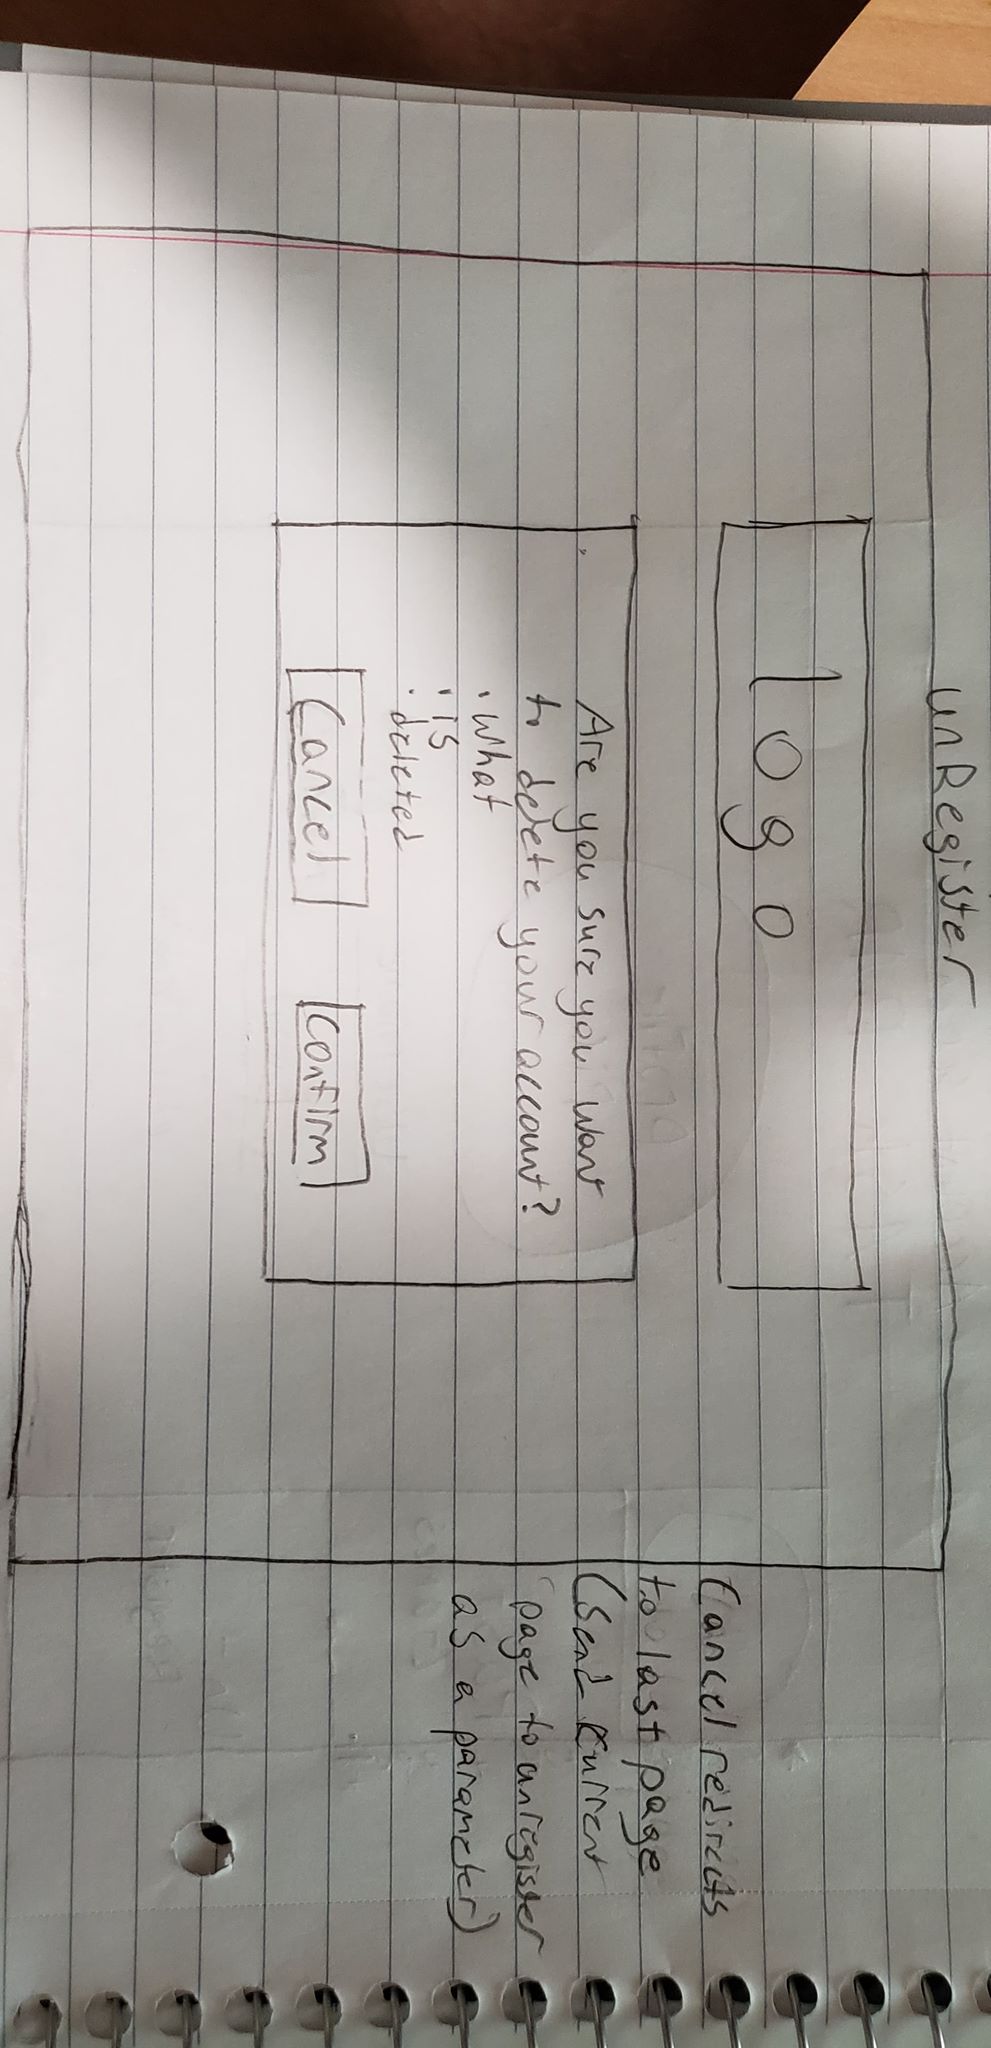 unRegister
logo
Are you sure you want
to delete your account?
. What
. is
. deleted
Cancel
confirm
Cancel redirects
to last page
(send current
page to unregister
as a parameter)